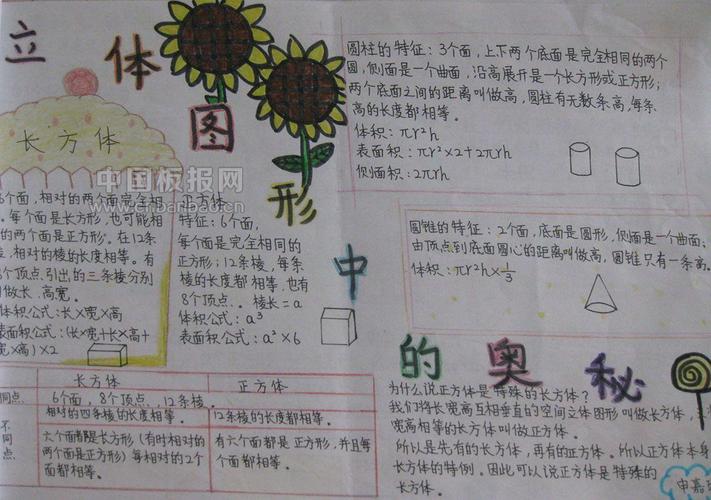 立体图形中的奥秘
长方体
6个面,相对的两个面完全相
。每个面是长方形,也可能相
的两个面是正方形。在12条
相对的棱的长度相等。有
个顶点.引出的三条棱分别
做长.高宽。
体积公式:长×宽×高
表面积公式:(长×宽+长×高+
宽×高)×2
正方体
特征:6个面,
每个面是完全相同的
正方形;12条棱,每条
棱的长度都相等.也有
8个顶点.. 棱长=a
体积公式:a³
表面积公式:a²×6
圆柱的特征:3个面,上下两个底面是完全相同的两个
圆,侧面是一个曲面,沿高展开是一个长方形或正方形;
两个底面之间的距离叫做高,圆柱有无数条高,每条
高的长度都相等。
体积:πr²h
表面积:πr²×2+2πrh
侧面积:2πrh
圆锥的特征:2个面,底面是圆形,侧面是一个曲面;
由顶点到底面圆心的距离叫做高,圆锥只有一条高。
体积:πr²h×1/3
长方体 正方体
同点 6个面,8个顶点.,12条棱。
不同点 相对的四条棱的长度相等。 12条棱的长度都相等。
六个面都是长方形(有时相对的
两个面是正方形)每相对的2个
面都相等。
有六个面都是正方形,并且每
个面都相等。
为什么说正方体是特殊的长方体?
我们将长宽高互相垂直的空间立体图形叫做长方体,
宽高相等的长方体叫做正方体。
所以是先有的长方体,再有的正方体。所以正方体本身
长方体的特例。因此可以说正方体是特殊的
长方体。
申嘉
中国板报网
www.cnbanbao.cn